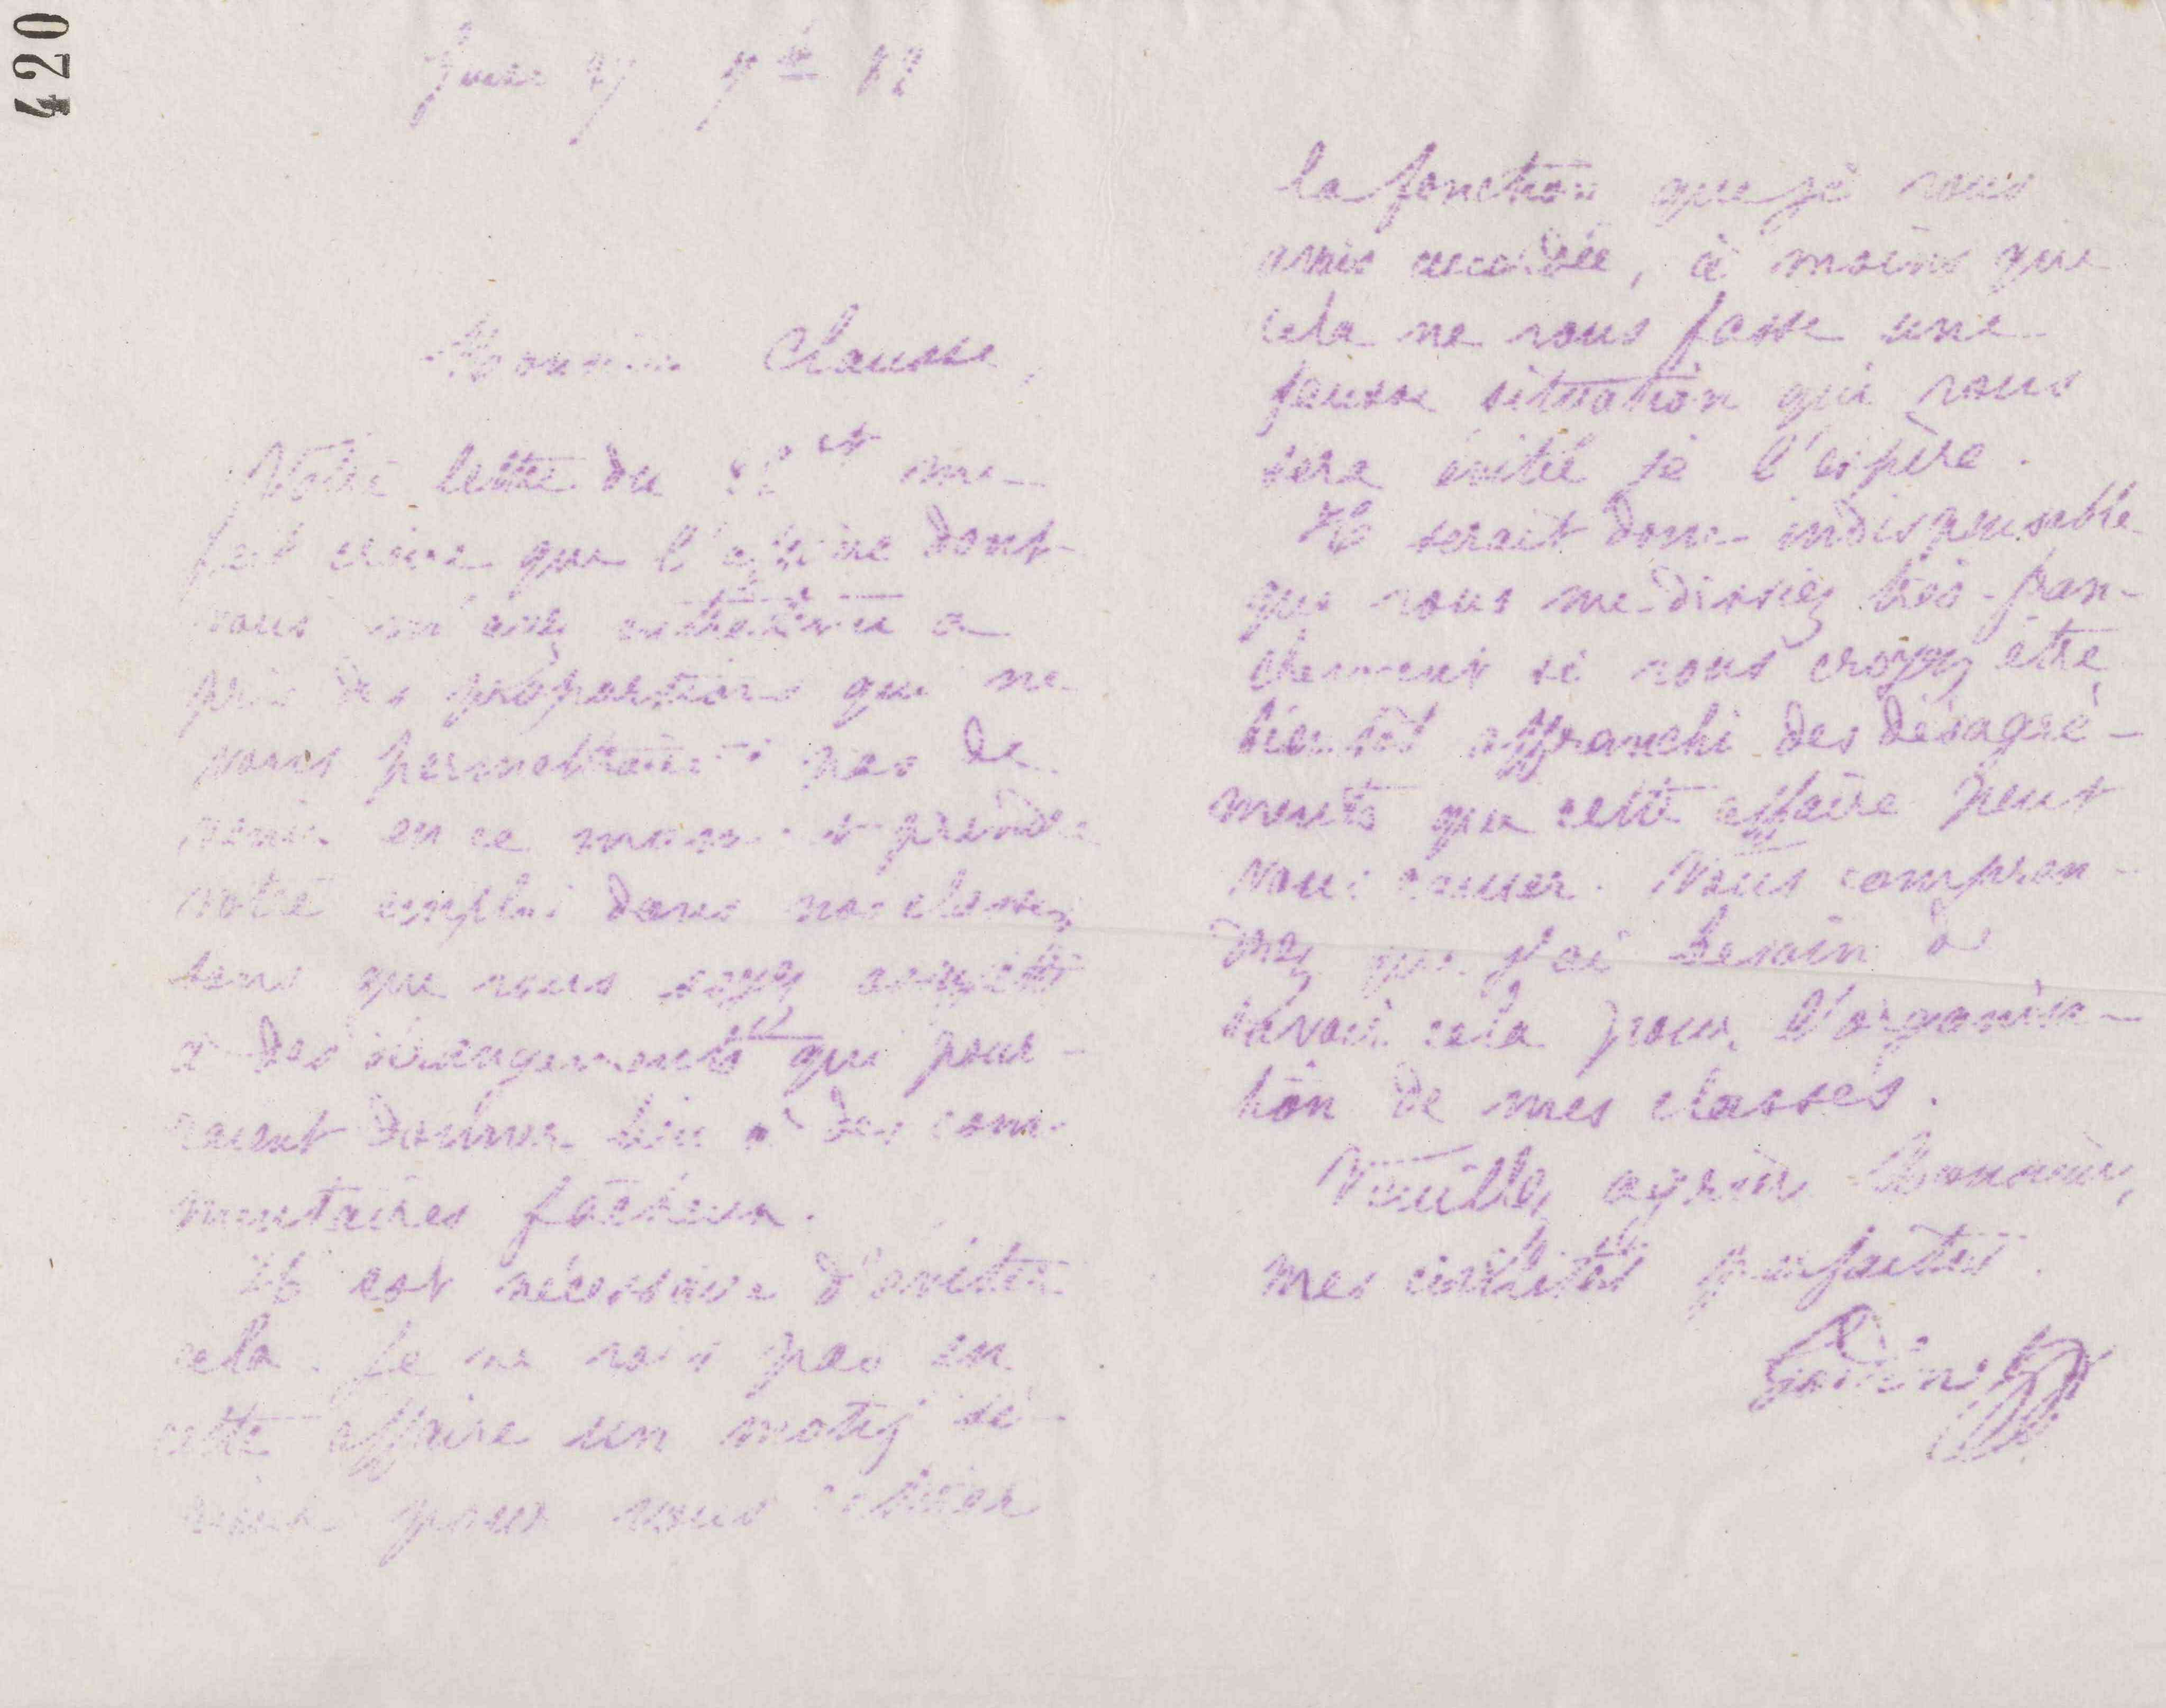 420
Guise 27 7bre 82
Monsieur Clausse,
Votre lettre du 22 ct me
fait croire que dont
vous m'avez entretenu a
pris des proportions qui ne
vous permettraient pas de
venir en ce moment prendre
votre emploi dans nos classes
sans que vous soyez assujetti
à des dérangements qui pour-
raient donner lieu à des com-
mentaires fâcheux.
Il est nécessaire d'éviter
cela. Je ne vois pas en
cette affaire un motif sé-
rieux pour vous retirer
la fonction que je vous
avais accordée, à moins que
cela ne vous fasse une
fausse situation qui vous
sera évitée je l'espère.
Il serait donc indispensable
que vous me disiez très-fran-
chement si vous croyez être
bientôt affranchi des désagré-
ments que cette affaire peut
vous causer. Vous compren-
nez que j'ai besoin de
savoir cela pour l'organisa-
tion de mes classes.
Veuillez agréer Monsieur,
mes civilités parfaites.
Godin